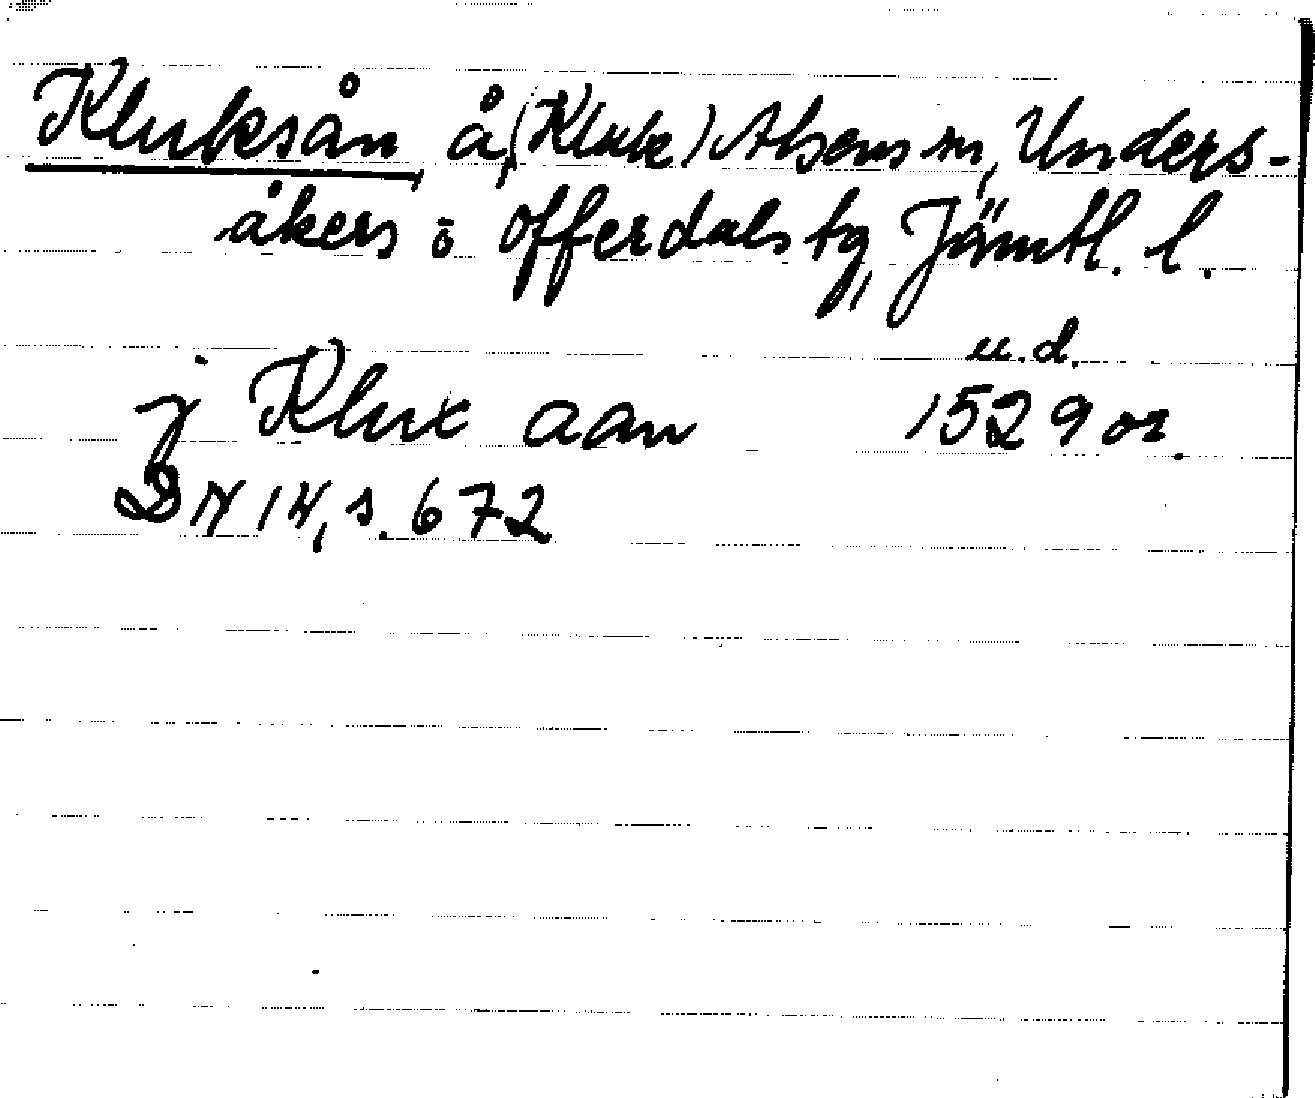 Kluksån, å, (Kluk) Alsens sn, Unders-
åkers o Offerdals tg, Jämtl. l.
u.d.
j Klux aan 1529 or.
DN 14, s. 672